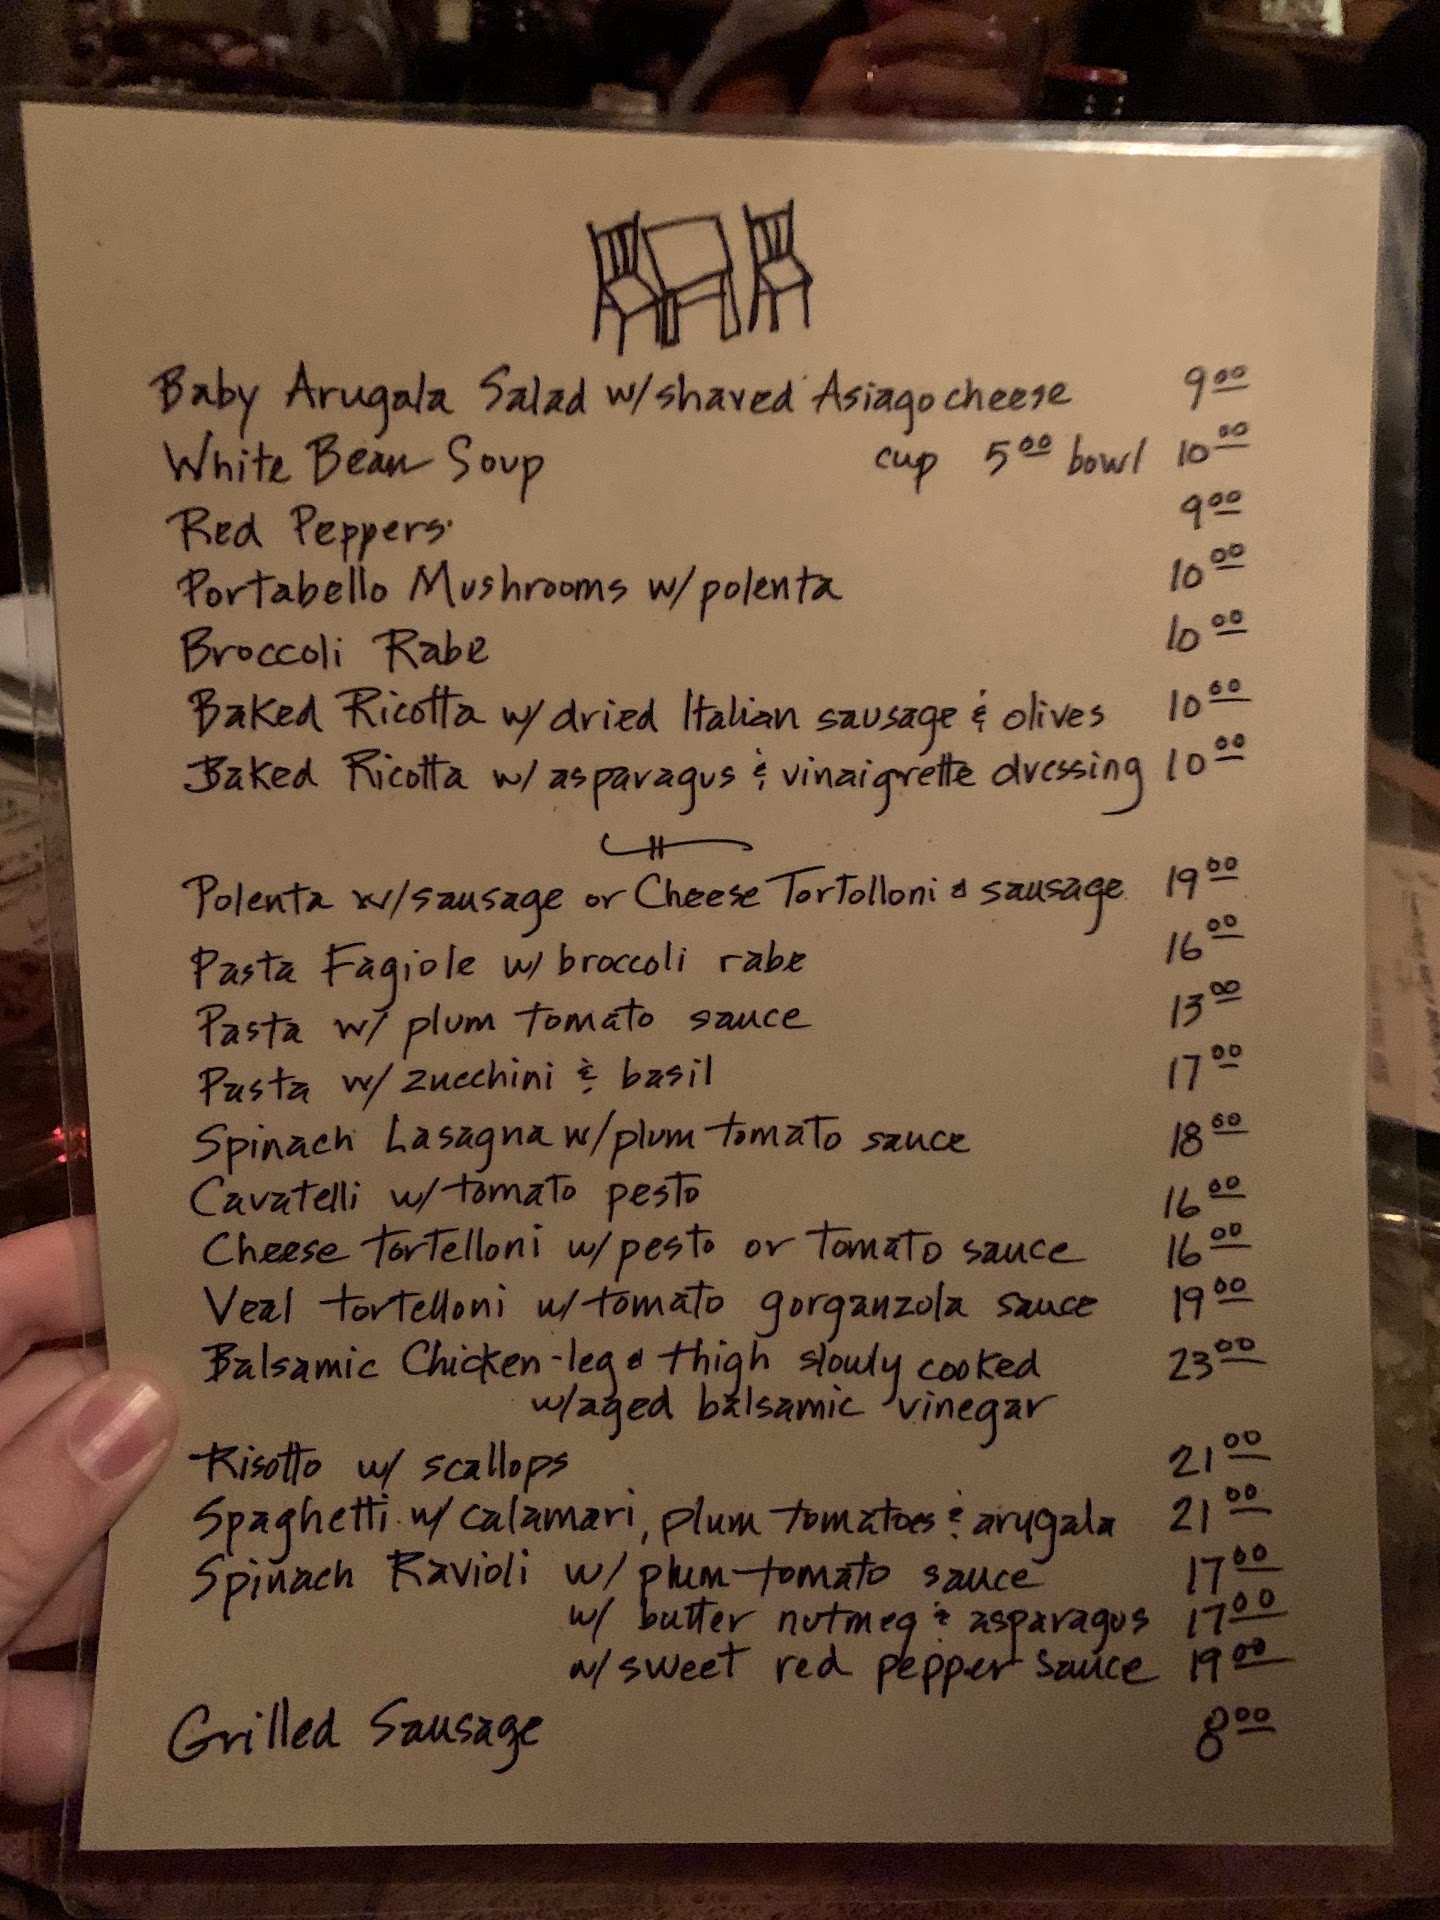 Baby Arugala Salad w/shaved Asiago cheese 9.00
White Bean Soup cup 5.00 bowl 10.00
Red Peppers 9.00
Portabello Mushrooms w/polenta 10.00
Broccoli Rabe 10.00
Baked Ricotta w/dried Italian sausage & olives 10.00
Baked Ricotta w/asparagus & vinaigrette dressing 10.00
Polenta w/sausage or Cheese Tortolloni & sausage 19.00
Pasta Fagiole w/ broccoli rabe 16.00
Pasta w/ plum tomato sauce 13.00
Pasta w/ zucchini & basil 17.00
Spinach Lasagna w/plum tomato sauce 18.00
Cavatelli w/tomato pesto 16.00
Cheese tortelloni w/pesto or tomato sauce 16.00
Veal tortelloni w/tomato gorganzola sauce 19.00
Balsamic Chicken-leg & thigh slowly cooked 23.00
w/aged balsamic vinegar
Risotto w/ scallops 21.00
Spaghetti w/calamari, plum tomatoes & arugala 21.00
Spinach Ravioli w/ plum tomato sauce 17.00
w/ butter nutmeg & asparagus 17.00
w/sweet red pepper sauce 19.00
Grilled Sausage 8.00